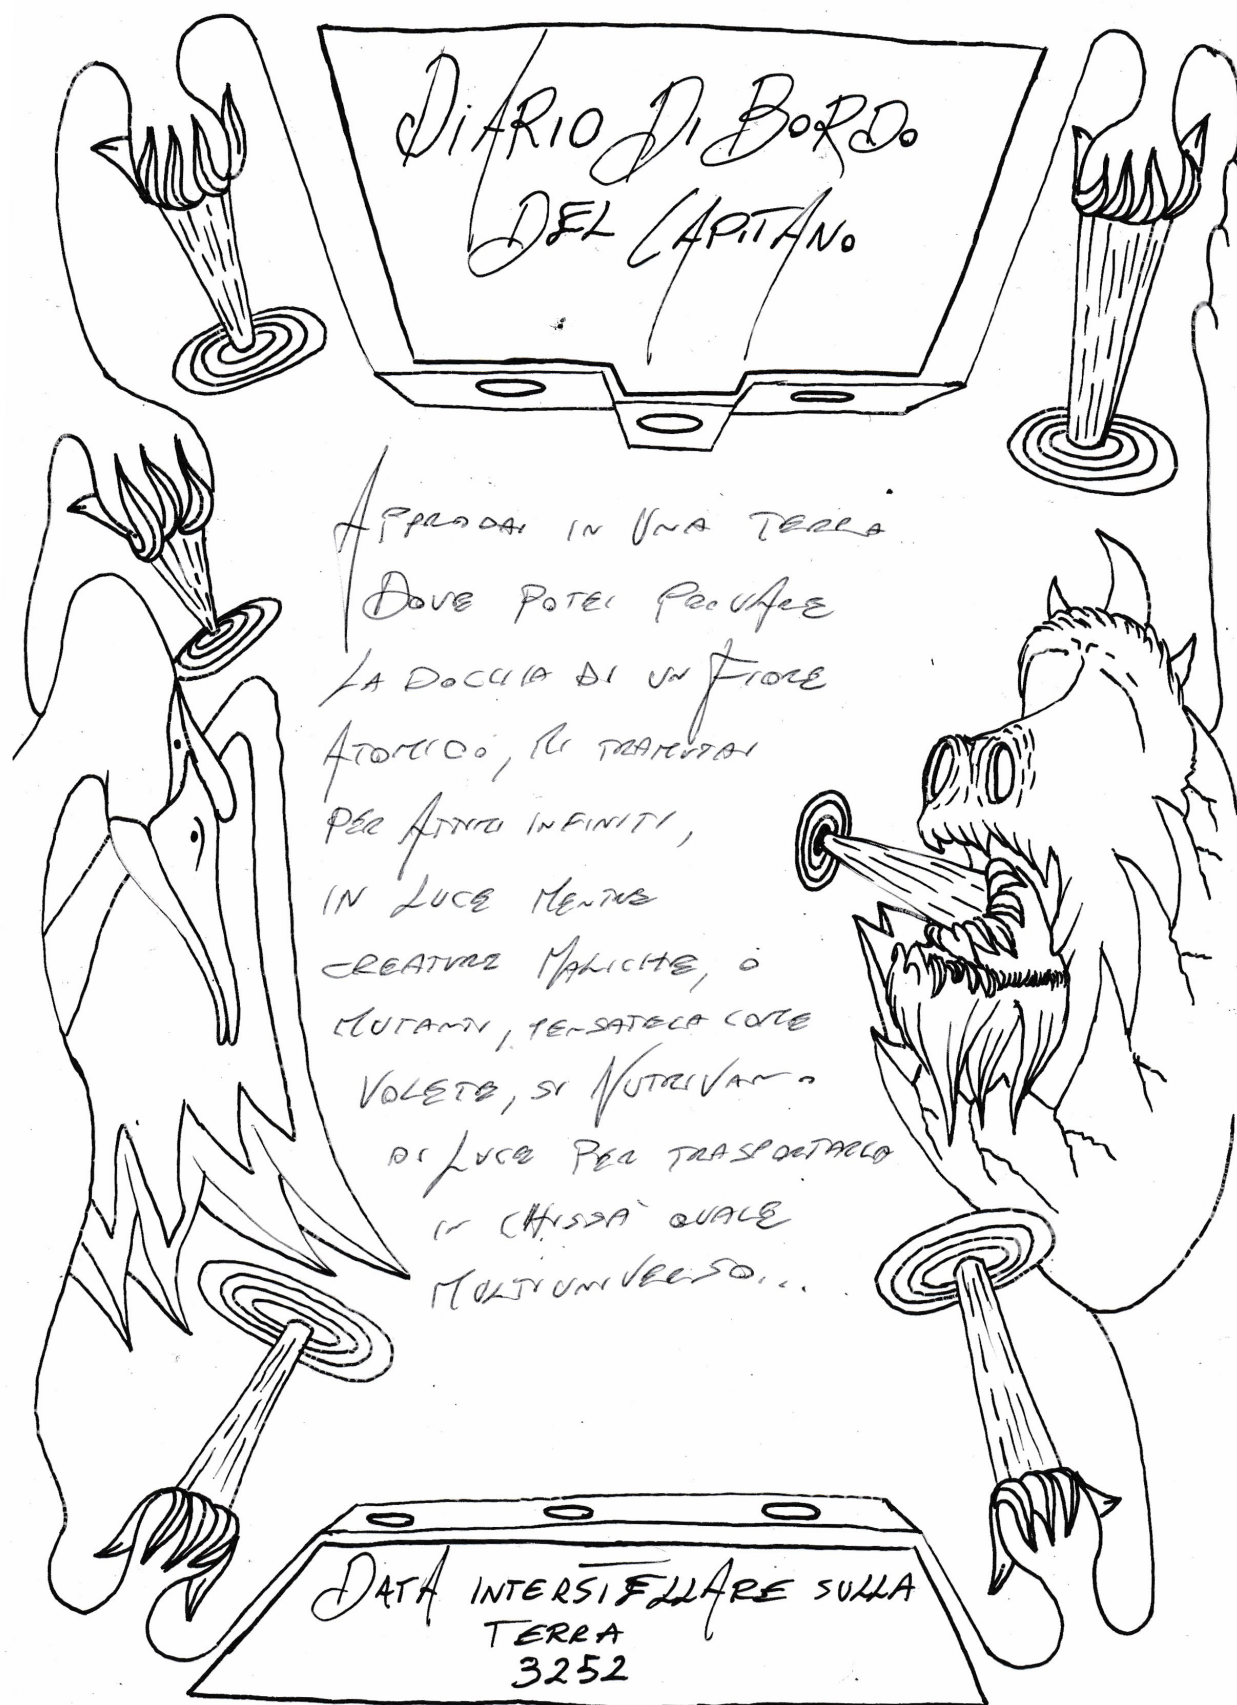 DIARIO DI BORDO
DEL CAPITANO
APPRODAI IN UNA TERRA
DOVE POTEI PROVARE
LA DOCCIA DI UN FIORE
ATOMICO, MI TRAMUTAI
PER ATTIMI INFINITI,
IN LUCE MENTRE
CREATURE MALICHE, O
MUTANTI, PENSATELA COME
VOLETE, SI NUTRIVANO
DI LUCE PER TRASPORTARLA
IN CHISSÀ QUALE
MULTIUNIVERSO...
DATA INTERSTELLARE SULLA
TERRA
3252